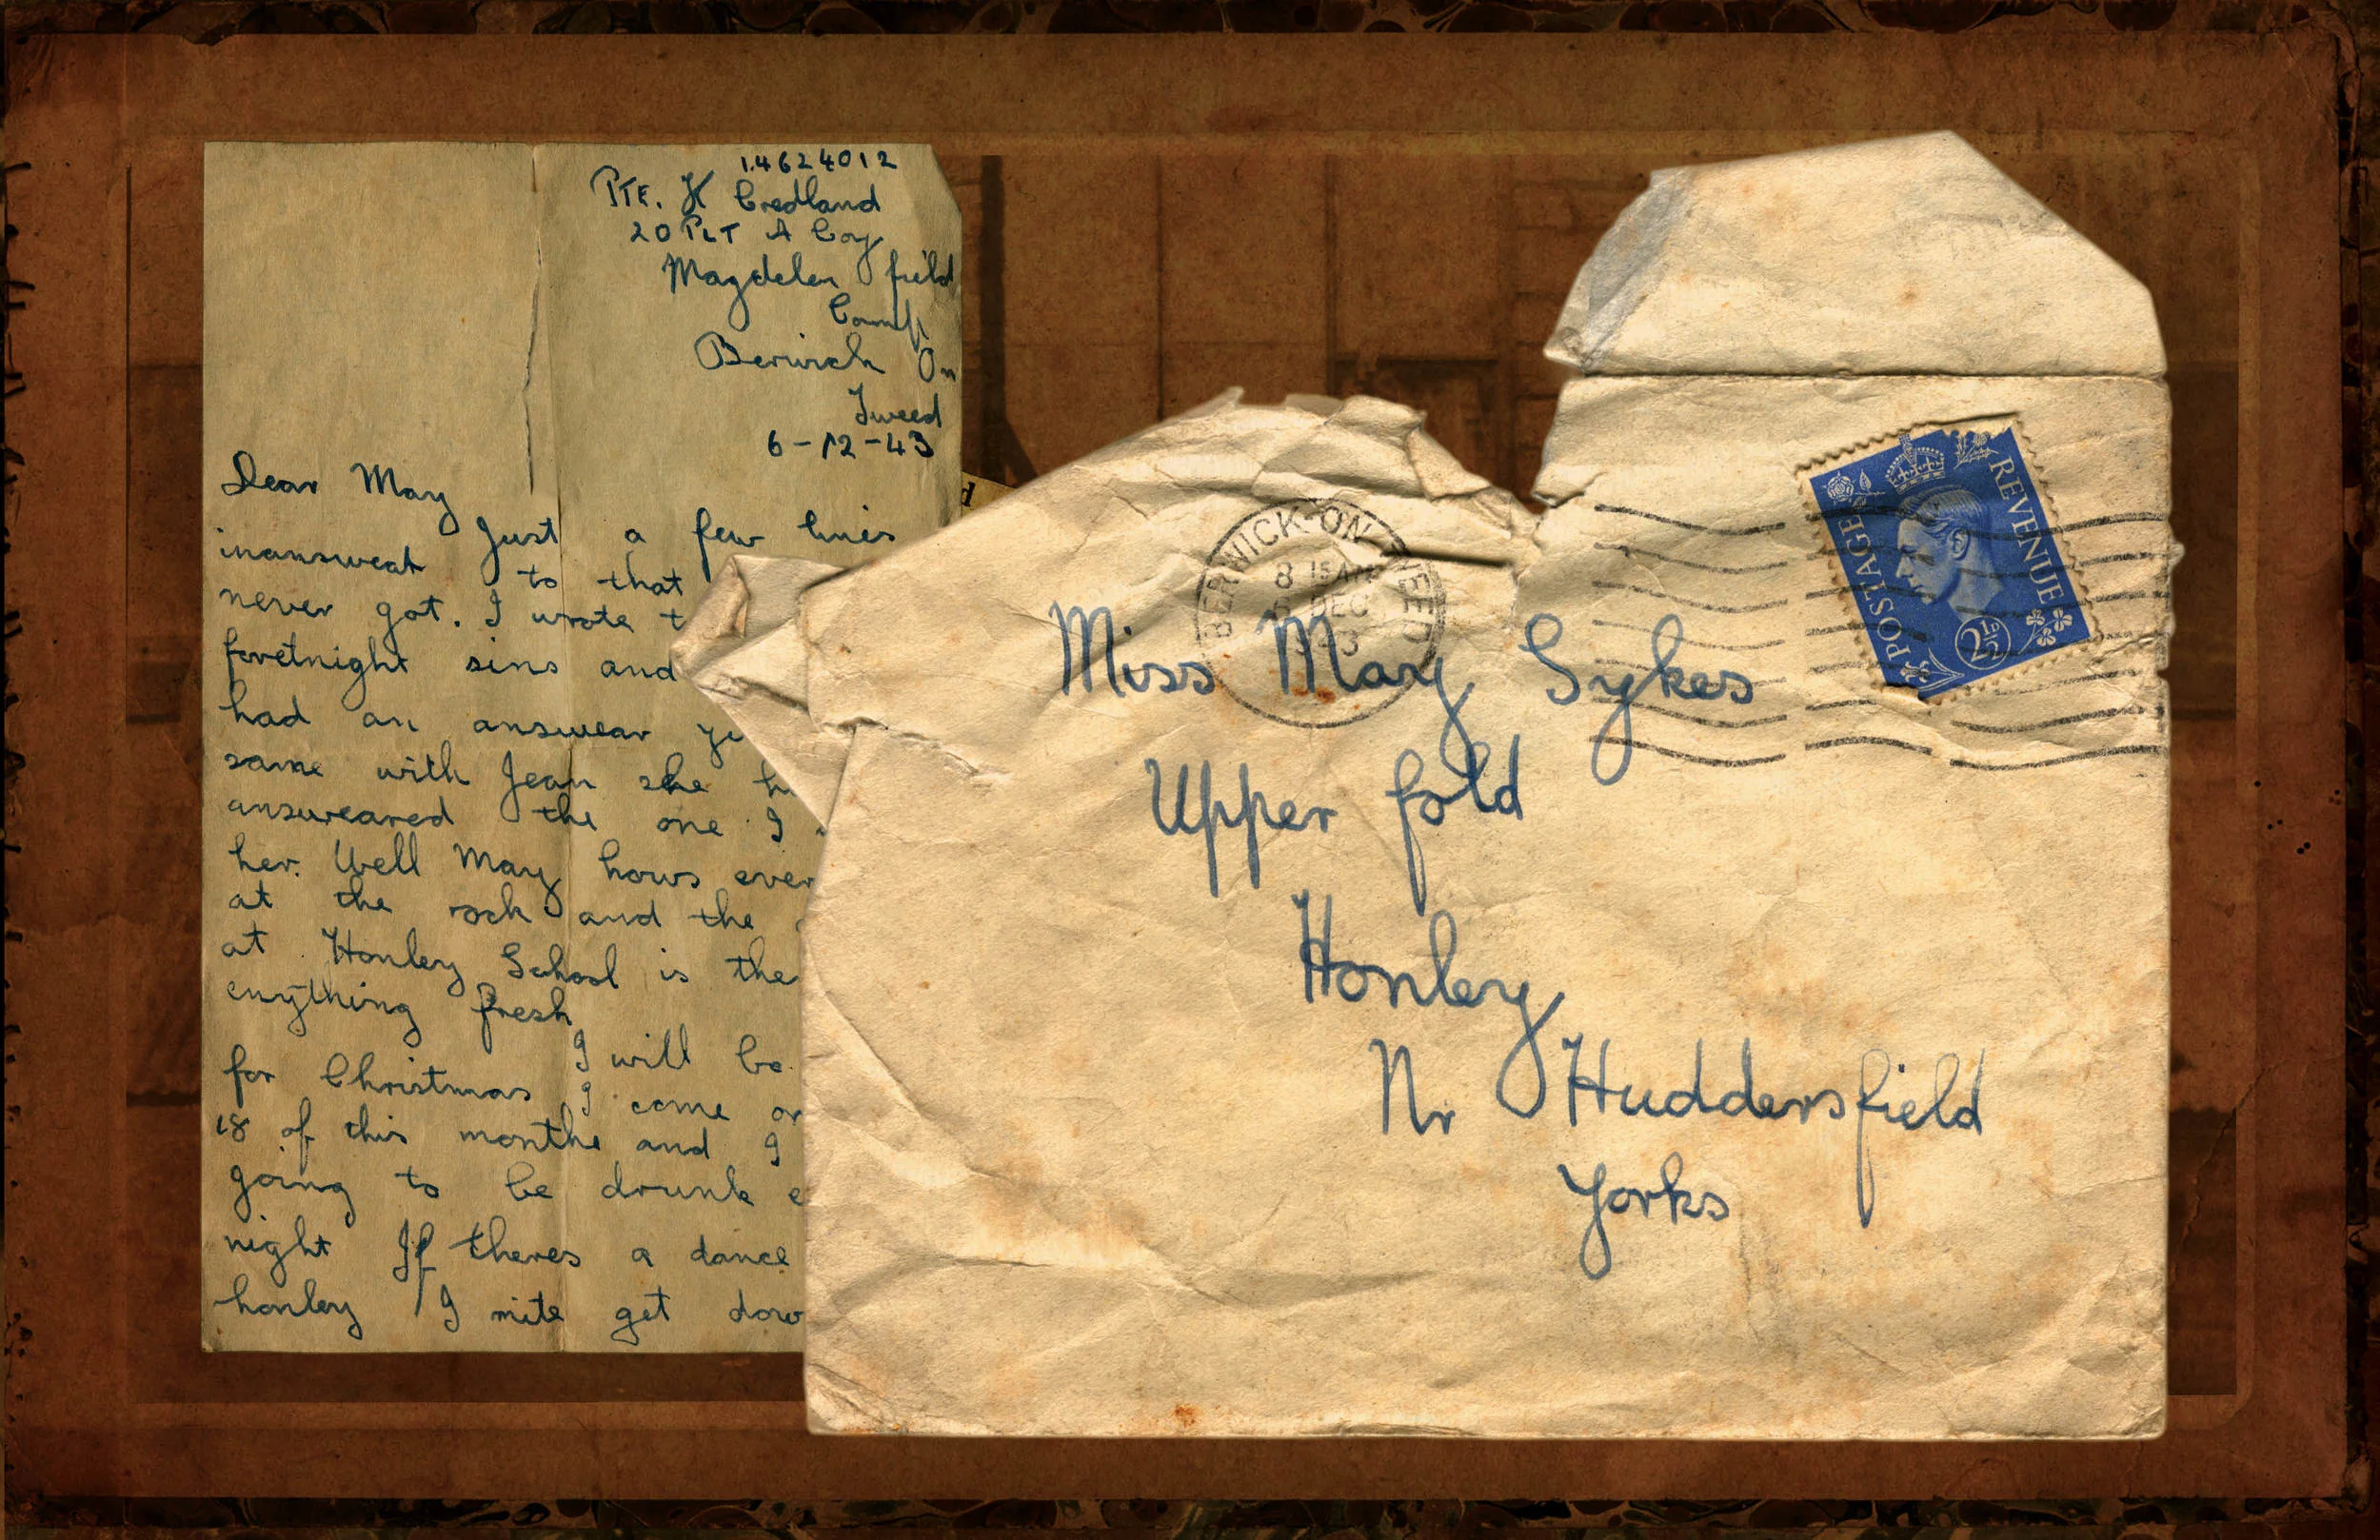 14624012
PTE. H Credland
20 PLT A Coy
Magdelen field
Camp
Berwick On
Tweed
6-12-43
Dear May
Just a few lines
inanswear to that
never got. I wrote
foretnight sins and
had an answear
same with Jean she
answeared the one I
her. Well May hows
at the rock and the
at Honley School is
enything fresh
I will be
for Christmas I come
18 of this monthe and I
going to be drunk
night If theres a dance
honley I mite get
BERWICK-ON-TWEED
8 15 AM
DEC
Miss May Sykes
Upper fold
Honley
Nr Huddersfield
Yorks
POSTAGE
REVENUE
2½D